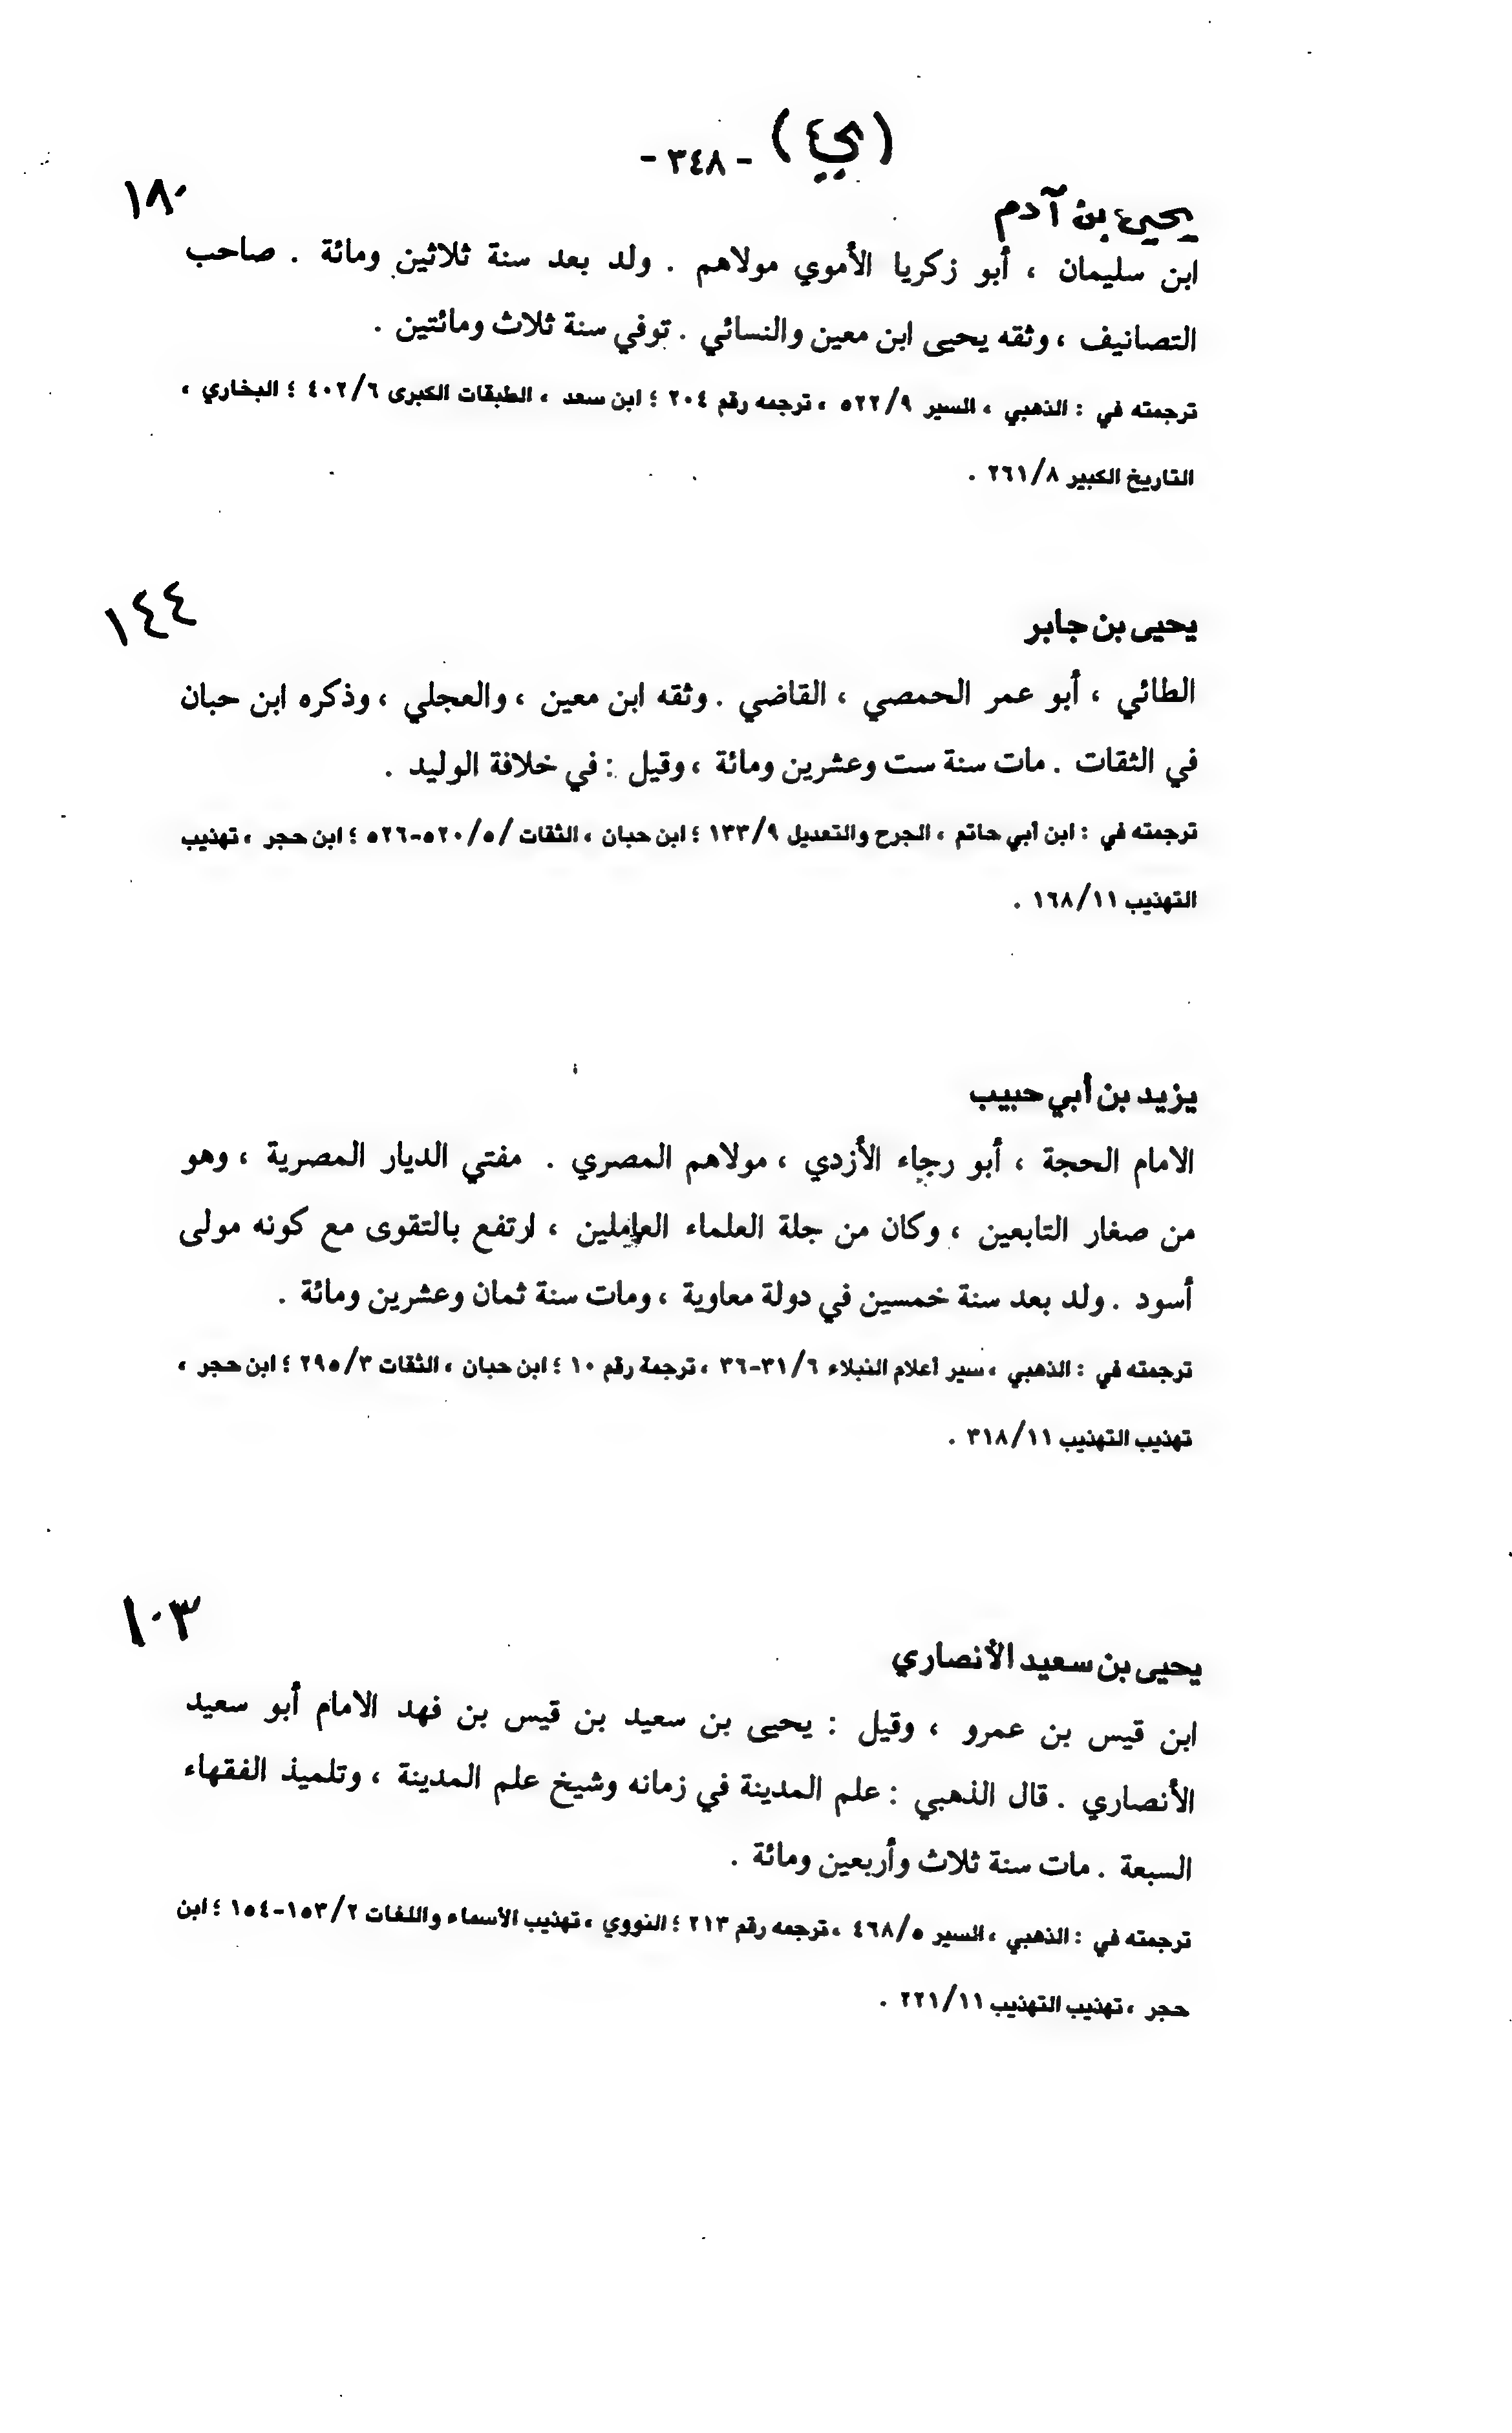 (ي)
- ٣٤٨ -
١٨٠
يحيى بن آدم
ابن سليمان ، أبو زكريا الأموي مولاهم . ولد بعد سنة ثلاثين ومائة . صاحب
التصانيف ، وثقه يحيى ابن معين والنسائي . توفي سنة ثلاث ومائتين .
ترجمته في : الذهبي ، السير ٥٢٢/٩ ، ترجمه رقم ٢٠٤ ؛ ابن سعد ، الطبقات الكبرى ٤٠٢/٦ ؛ البخاري ،
التاريخ الكبير ٢٦١/٨ .
١٤٤
يحيى بن جابر
الطائي ، أبو عمر الحمصي ، القاضي . وثقه ابن معين ، والعجلي ، وذكره ابن حبان
في الثقات . مات سنة ست وعشرين ومائة ، وقيل : في خلافة الوليد .
ترجمته في : ابن أبي حاتم ، الجرح والتعديل ١٣٣/٩ ؛ ابن حبان ، الثقات /٥٢٠/٥-٥٢٦ ؛ ابن حجر ، تهذيب
التهذيب ١٦٨/١١ .
يزيد بن أبي حبيب
الامام الحجة ، أبو رجاء الأزدي ، مولاهم المصري . مفتي الديار المصرية ، وهو
من صغار التابعين ، وكان من جلة العلماء العاملين ، ارتفع بالتقوى مع كونه مولى
أسود . ولد بعد سنة خمسين في دولة معاوية ، ومات سنة ثمان وعشرين ومائة .
ترجمته في : الذهبي ، سير أعلام النبلاء ٣١/٦-٣٦ ، ترجمة رقم ١٠ ؛ ابن حبان ، الثقات ٢٩٥/٣ ؛ ابن حجر ،
تهذيب التهذيب ٣١٨/١١ .
١٠٣
يحيى بن سعيد الأنصاري
ابن قيس بن عمرو ، وقيل : يحيى بن سعيد بن قيس بن فهد الامام أبو سعيد
الأنصاري . قال الذهبي : علم المدينة في زمانه وشيخ علم المدينة ، وتلميذ الفقهاء
السبعة . مات سنة ثلاث وأربعين ومائة .
ترجمته في : الذهبي ، السير ٤٦٨/٥ ، ترجمه رقم ٢١٣ ؛ النووي ، تهذيب الأسماء واللغات ١٥٣/٢-١٥٤ ؛ ابن
حجر ، تهذيب التهذيب ٢٢١/١١ .